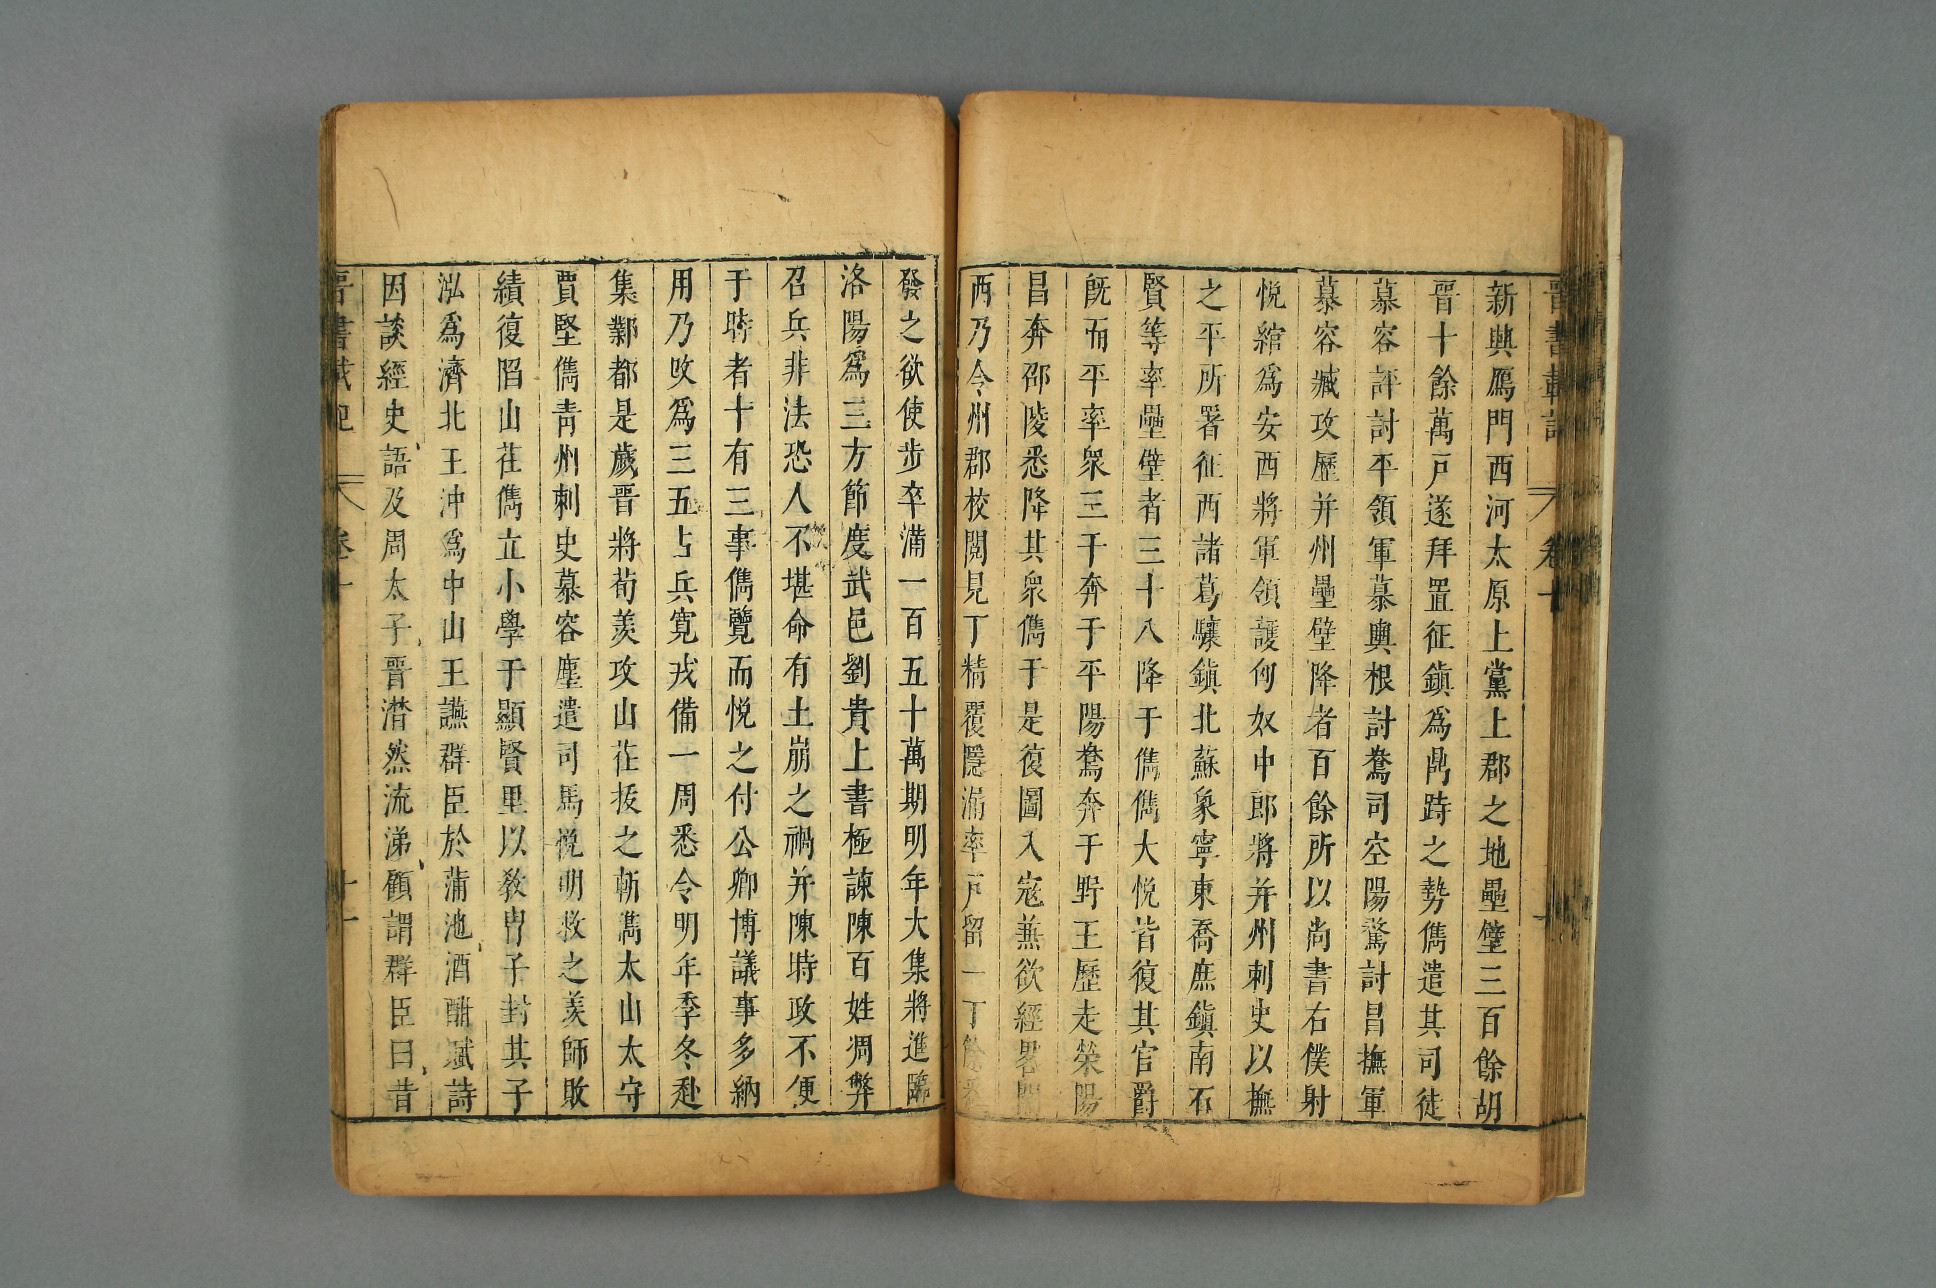 晉書載記 卷十
新興鴈門西河太原上黨上郡之地壘壁三百餘胡
晉十餘萬戸遂拜置征鎮爲鼎跱之勢儁遣其司徒
慕容評討平領軍慕輿根討鴦司空陽騖討昌撫軍
慕容臧攻歷并州壘壁降者百餘所以尚書右僕射
悅綰爲安西將軍領護匈奴中郎將并州刺史以撫
之平所署征西諸葛驤鎮北蘇象寧東喬庶鎮南石
賢等率壘壁者三十八降于儁儁大悅皆復其官爵
旣而平率衆三千奔于平陽鴦奔于野王歷走滎陽
昌奔邵陵悉降其衆儁于是復圖入寇兼欲經畧關
西乃令州郡校閱見丁精覆隱漏率戸留一丁餘悉
發之欲使步卒滿一百五十萬期明年大集將進臨
洛陽爲三方節度武邑劉貴上書極諫陳百姓凋弊
召兵非法恐人不堪命有土崩之禍并陳時政不便
于時者十有三事儁覽而悅之付公卿博議事多納
用乃改爲三五占兵寬戎備一周悉令明年季冬赴
集鄴都是歲晉將荀羨攻山茌拔之斬儁太山太守
賈堅儁青州刺史慕容塵遣司馬悅明救之羨師敗
績復陷山茌儁立小學于顯賢里以敎胄子封其子
泓爲濟北王沖爲中山王讌群臣於蒲池酒酣賦詩
因談經史語及周太子晉潸然流涕顧謂群臣曰昔
晉書載記 卷十 十一